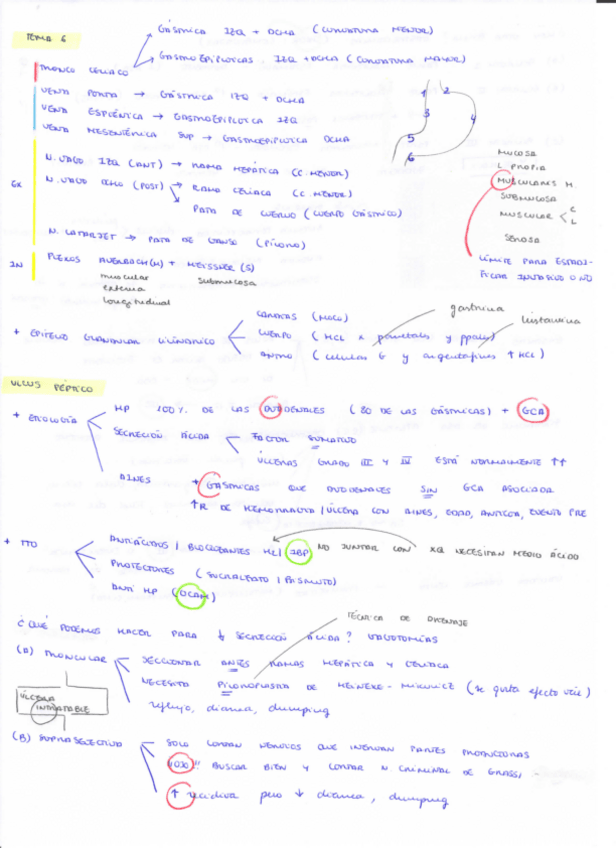 TEMA 6
GÁSTRICA IZQ + DCHA (CURVATURA MENOR)
TRONCO CELIACO
GASTROEPIPLOICAS IZQ + DCHA (CURVATURA MAYOR)
VENA PORTA → GÁSTRICA IZQ + DCHA
VENA ESPLÉNICA → GASTROEPIPLOICA IZQ
VENA MESENTÉRICA SUP → GASTROEPIPLOICA DCHA
1 2 3 4 5 6
N. VAGO IZQ (ANT) → RAMA HEPÁTICA (C. MENOR)
EX N. VAGO DCHO (POST) → RAMA CELIACA (C. MENOR)
PATA DE CUERVO (CUERPO GÁSTRICO)
N. LATARJET → PATA DE GANSO (PÍLORO)
IN PLEXOS AUERBACH (M) + MEISSNER (S)
muscular submucosa
externa
longitudinal
MUCOSA
L. PROPIA
MUSCULARIS M.
SUBMUCOSA
MUSCULAR < C L
SEROSA
LÍMITE PARA ESTADI-
FICAR INVASIVO O NO
+ EPITELIO GLANDULAR CILÍNDRICO
CARDIAS (MOCO)
CUERPO (HCL x parietales y ppales)
ANTRO (células G y argentafines ↑ HCL)
gastrina
histamina
ULCUS PÉPTICO
+ ETIOLOGÍA
HP 100% DE LAS DUODENALES (80 DE LAS GÁSTRICAS) + GCA
SECRECIÓN ÁCIDA < FACTOR SUMATIVO
ÚLCERAS GRADO III Y IV ESTÁ NORMALMENTE ↑↑
AINES + GÁSTRICAS QUE DUODENALES SIN GCA ASOCIADA
↑R DE HEMORRAGIA / ÚLCERA CON AINES, EDAD, ANTICOA, EVENTO PRE
+ TTO
ANTIÁCIDOS / BLOQUEANTES H2 / IBP NO JUNTAR CON XQ NECESITAN MEDIO ÁCIDO
PROTECTORES (SUCRALFATO / BISMUTO)
ANTI HP (OCAM)
¿QUÉ PODEMOS HACER PARA ↓ SECRECIÓN ÁCIDA? VAGOTOMÍAS
TÉCNICA DE DRENAJE
(A) TRONCULAR
SECCIONAR ANTES RAMAS HEPÁTICA Y CELIACA
NECESITO PILOROPLASTIA DE HEINEKE-MIKULICZ (se quita efecto val)
reflujo, diarrea, dumping
ÚLCERA
INTRATABLE
(B) SUPRASELECTIVA
SOLO CORTAN NERVIOS QUE INERVAN PARTES PRODUCTORAS
"OJO"! BUSCAR BIEN Y CORTAR N. CRIMINAL DE GRASSI
↑ recidiva pero ↓ diarrea, dumping